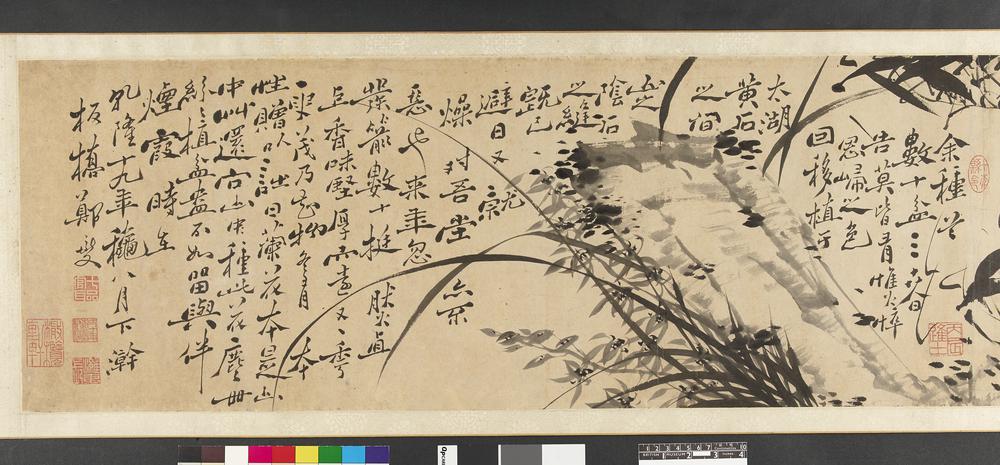 余種蘭
數十盆三春
告莫皆有憔悴
思歸之色
因移植于
太湖
黃石
之間
山之
陰石
之縫
既已
避日又
就
燥對吾堂亦不
惡也來年忽
發箭數十挺肰直
上香味堅厚而遠又一年
更茂乃知物各有本
性贈以詩曰蘭花本是山
中草還向山中種此花塵世
紛紛植盆盎不如留與伴
煙霞時在
乾隆十九年穐八月下澣
板橋鄭燮
BRITISH MUSEUM